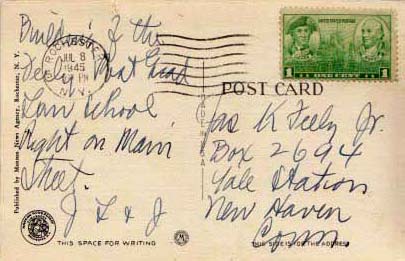 Building of the
Feely
Law School
right on Main
Street.
J L & J
ROCHESTER
JUL 8
1945
PM
N.Y.
UNITED STATES POSTAGE
1 ONE CENT 1
POST CARD
Jas K Feely Jr.
Box 2694
Yale Station
New Haven
Conn.
Published by Manson News Agency, Rochester, N. Y.
MADE IN U.S.A.
THIS SPACE FOR WRITING
THIS SIDE FOR THE ADDRESS